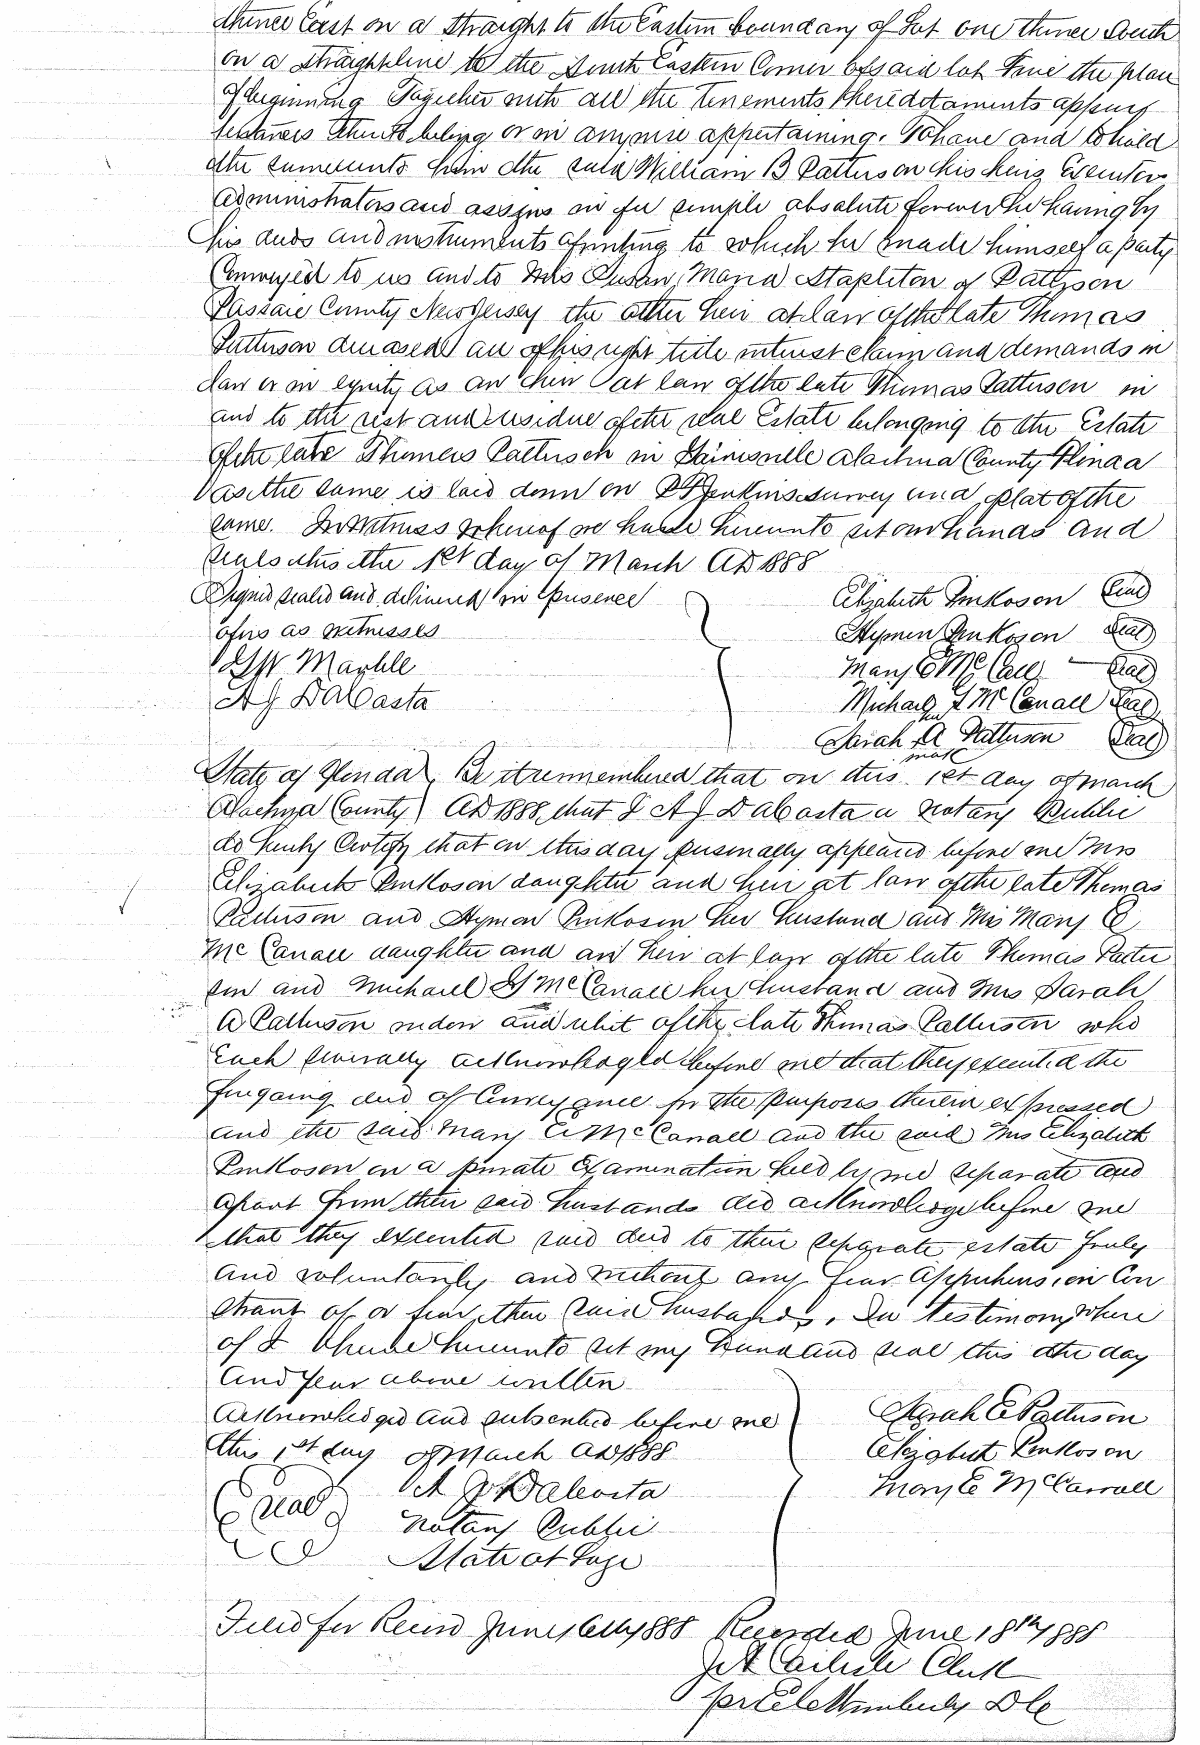 thence East on a straight to the Eastern boundary of Lot one thence South
on a straight line to the South Eastern Corner of said lot the place
of beginning Together with all the tenements heredetaments appur
tenances thereto belong or in anywise appertaining. To have and to hold
the same unto him the said William B Patterson his heirs Executors
administrators and assigns in fee simple absolute forever he having by
his deeds and instruments to which he made himself a party
Conveyed to us and to Mrs Susan Maria Stapleton of Patterson
Passaic County New Jersey the other heir at law of the late Thomas
Patterson deceased all of his right title interest claim and demands in
law or in equity as an heir at law of the late Thomas Patterson in
and to the rest and residue of the real Estate belonging to the Estate
of the late Thomas Patterson in Gainesville Alachua County Florida
as the same is laid down on Jenkins survey and plat of the
same. In Witness whereof we have hereunto set our hands and
seals this the 1st day of March AD 1888
Signed sealed and delivered in presence
of us as witnesses
Marble
A J DaCosta
Elizabeth Pinkoson Seal
Hymon Pinkoson Seal
Mary E McCall Seal
Michael G McCanall Seal
Sarah A Patterson Seal
her
mark
State of Florida Be it remembered that on this 1st day of March
Alachua County AD 1888, that I A J DaCosta a Notary Public
do hereby Certify that on this day personally appeared before me Mrs
Elizabeth Pinkoson daughter and heir at law of the late Thomas
Patterson and Hymon Pinkoson her husband and Mrs Mary E
McCanall daughter and an heir at law of the late Thomas Patter
son and Michael G McCanall her husband and Mrs Sarah
A Patterson widow and relict of the late Thomas Patterson who
Each severally acknowleged before me that they executed the
foregoing deed of Conveyance for the purposes therein expressed
and the said Mary E McCanall and the said Mrs Elizabeth
Pinkoson on a private Examination held by me separate and
apart from their said husbands did acknowledge before me
that they executed said deed to their separate estate freely
and voluntarily and without any fear apprehension Con
straint of or from their said husbands. In testimony where
of I have hereunto set my Hand and seal this the day
and year above written
Acknowledged and subscribed before me
this 1st day of March AD 1888
Seal A J DaCosta
Notary Public
State at Large
Sarah E Patterson
Elizabeth Pinkoson
Mary E McCarrall
Filed for Record June 16th 1888 Recorded June 18th 1888
J A Carlisle Clerk
per Wimberly D C